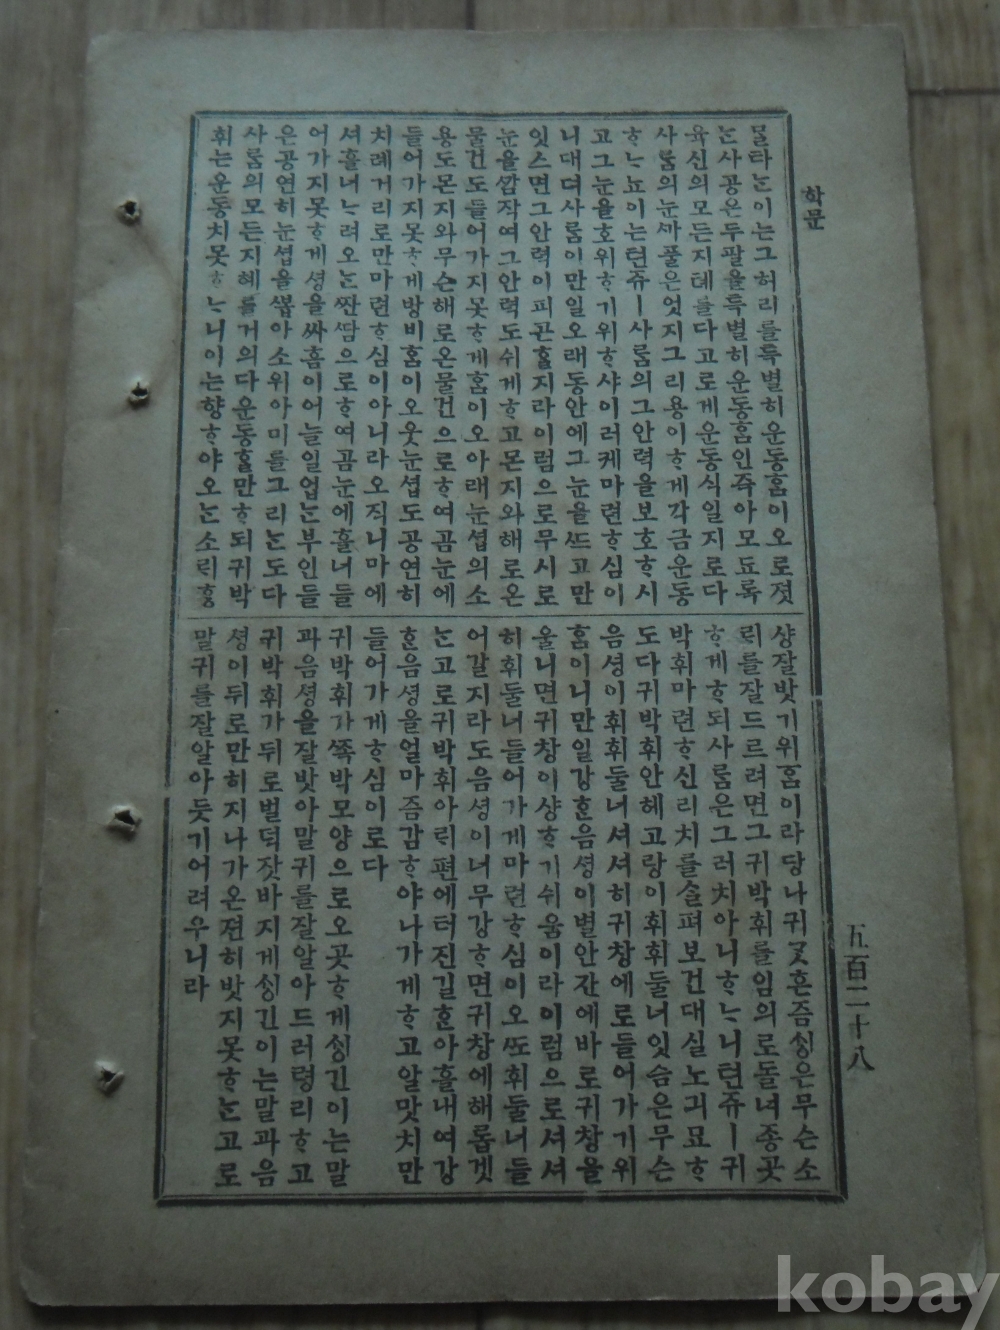 학문
五百二十八
믈타ᄂᆞᆫ이ᄂᆞᆫ그허리를특별히운동홈이오로젓
ᄂᆞᆫ사공은두팔을특별히운동홈인즉아모됴록
육신의모든지톄를다고로게운동식일지로다
사ᄅᆞᆷ의눈ᄭᅡ풀은엇지그리용이ᄒᆞ게각금운동
ᄒᆞᄂᆞ뇨이는텬쥬ㅣ사ᄅᆞᆷ의그안력을보호ᄒᆞ시
고그눈을호위ᄒᆞ기위ᄒᆞ샤이러케마련ᄒᆞ심이
니대뎌사ᄅᆞᆷ이만일오래동안에그눈을ᄯᅳ고만
잇스면그안력이피곤ᄒᆞᆯ지라이럼으로무시로
눈을ᄭᅡᆷ작여그안력도쉬게ᄒᆞ고몬지와해로온
물건도들어가지못ᄒᆞ게홈이오아래눈셥의소
용도몬지와무슨해로온물건으로ᄒᆞ여곰눈에
들어가지못ᄒᆞ게방비홈이오웃눈셥도공연히
치례거리로만마련ᄒᆞ심이아니라오직니마에
셔흘너ᄂᆞ려오ᄂᆞᆫᄧᅡᆫᄯᅡᆷ으로ᄒᆞ여곰눈에흘너들
어가지못ᄒᆞ게셩을싸홈이어늘일업ᄂᆞᆫ부인들
은공연히눈셥을ᄲᅩᆸ아소위아미를그리ᄂᆞᆫ도다
사ᄅᆞᆷ의모든지혜를거의다운동ᄒᆞᆯ만ᄒᆞ되귀박
휘는운동치못ᄒᆞᄂᆞ니이는향ᄒᆞ야오ᄂᆞᆫ소ᄅᆡ흥
샹잘밧기위홈이라당나귀ᄀᆞᆺᄒᆞᆫ즘ᄉᆡᆼ은무슨소
ᄅᆡ를잘드르려면그귀박휘를임의로돌녀종곳
ᄒᆞ게ᄒᆞ되사ᄅᆞᆷ은그러치아니ᄒᆞᄂᆞ니텬쥬ㅣ귀
박휘마련ᄒᆞ신리치를ᄉᆞᆯ펴보건대실노긔묘ᄒᆞ
도다귀박휘안헤고랑이휘휘둘녀잇슴은무슨
음셩이휘휘둘녀셔셔히귀창에로들어가기위
홈이니만일강ᄒᆞᆫ음셩이별안간에바로귀창을
울니면귀창이샹ᄒᆞ기쉬움이라이럼으로셔셔
히휘둘너들어가게마련ᄒᆞ심이오ᄯᅩ휘둘너들
어갈지라도음셩이너무강ᄒᆞ면귀창에해롭겟
ᄂᆞᆫ고로귀박휘아ᄅᆡ편에터진길ᄒᆞ나흘내여강
ᄒᆞᆫ음셩을얼마즘감ᄒᆞ야나가게ᄒᆞ고알맛치만
들어가게ᄒᆞ심이로다
귀박휘가ᄶᅩᆨ박모양으로오곳ᄒᆞ게ᄉᆡᆼ긴이는말
과음셩을잘밧아말귀를잘알아드러령리ᄒᆞ고
귀박휘가뒤로벌덕잣바지게ᄉᆡᆼ긴이는말과음
셩이뒤로만히지나가온젼히밧지못ᄒᆞᄂᆞᆫ고로
말귀를잘알아듯기어려우니라
kobay